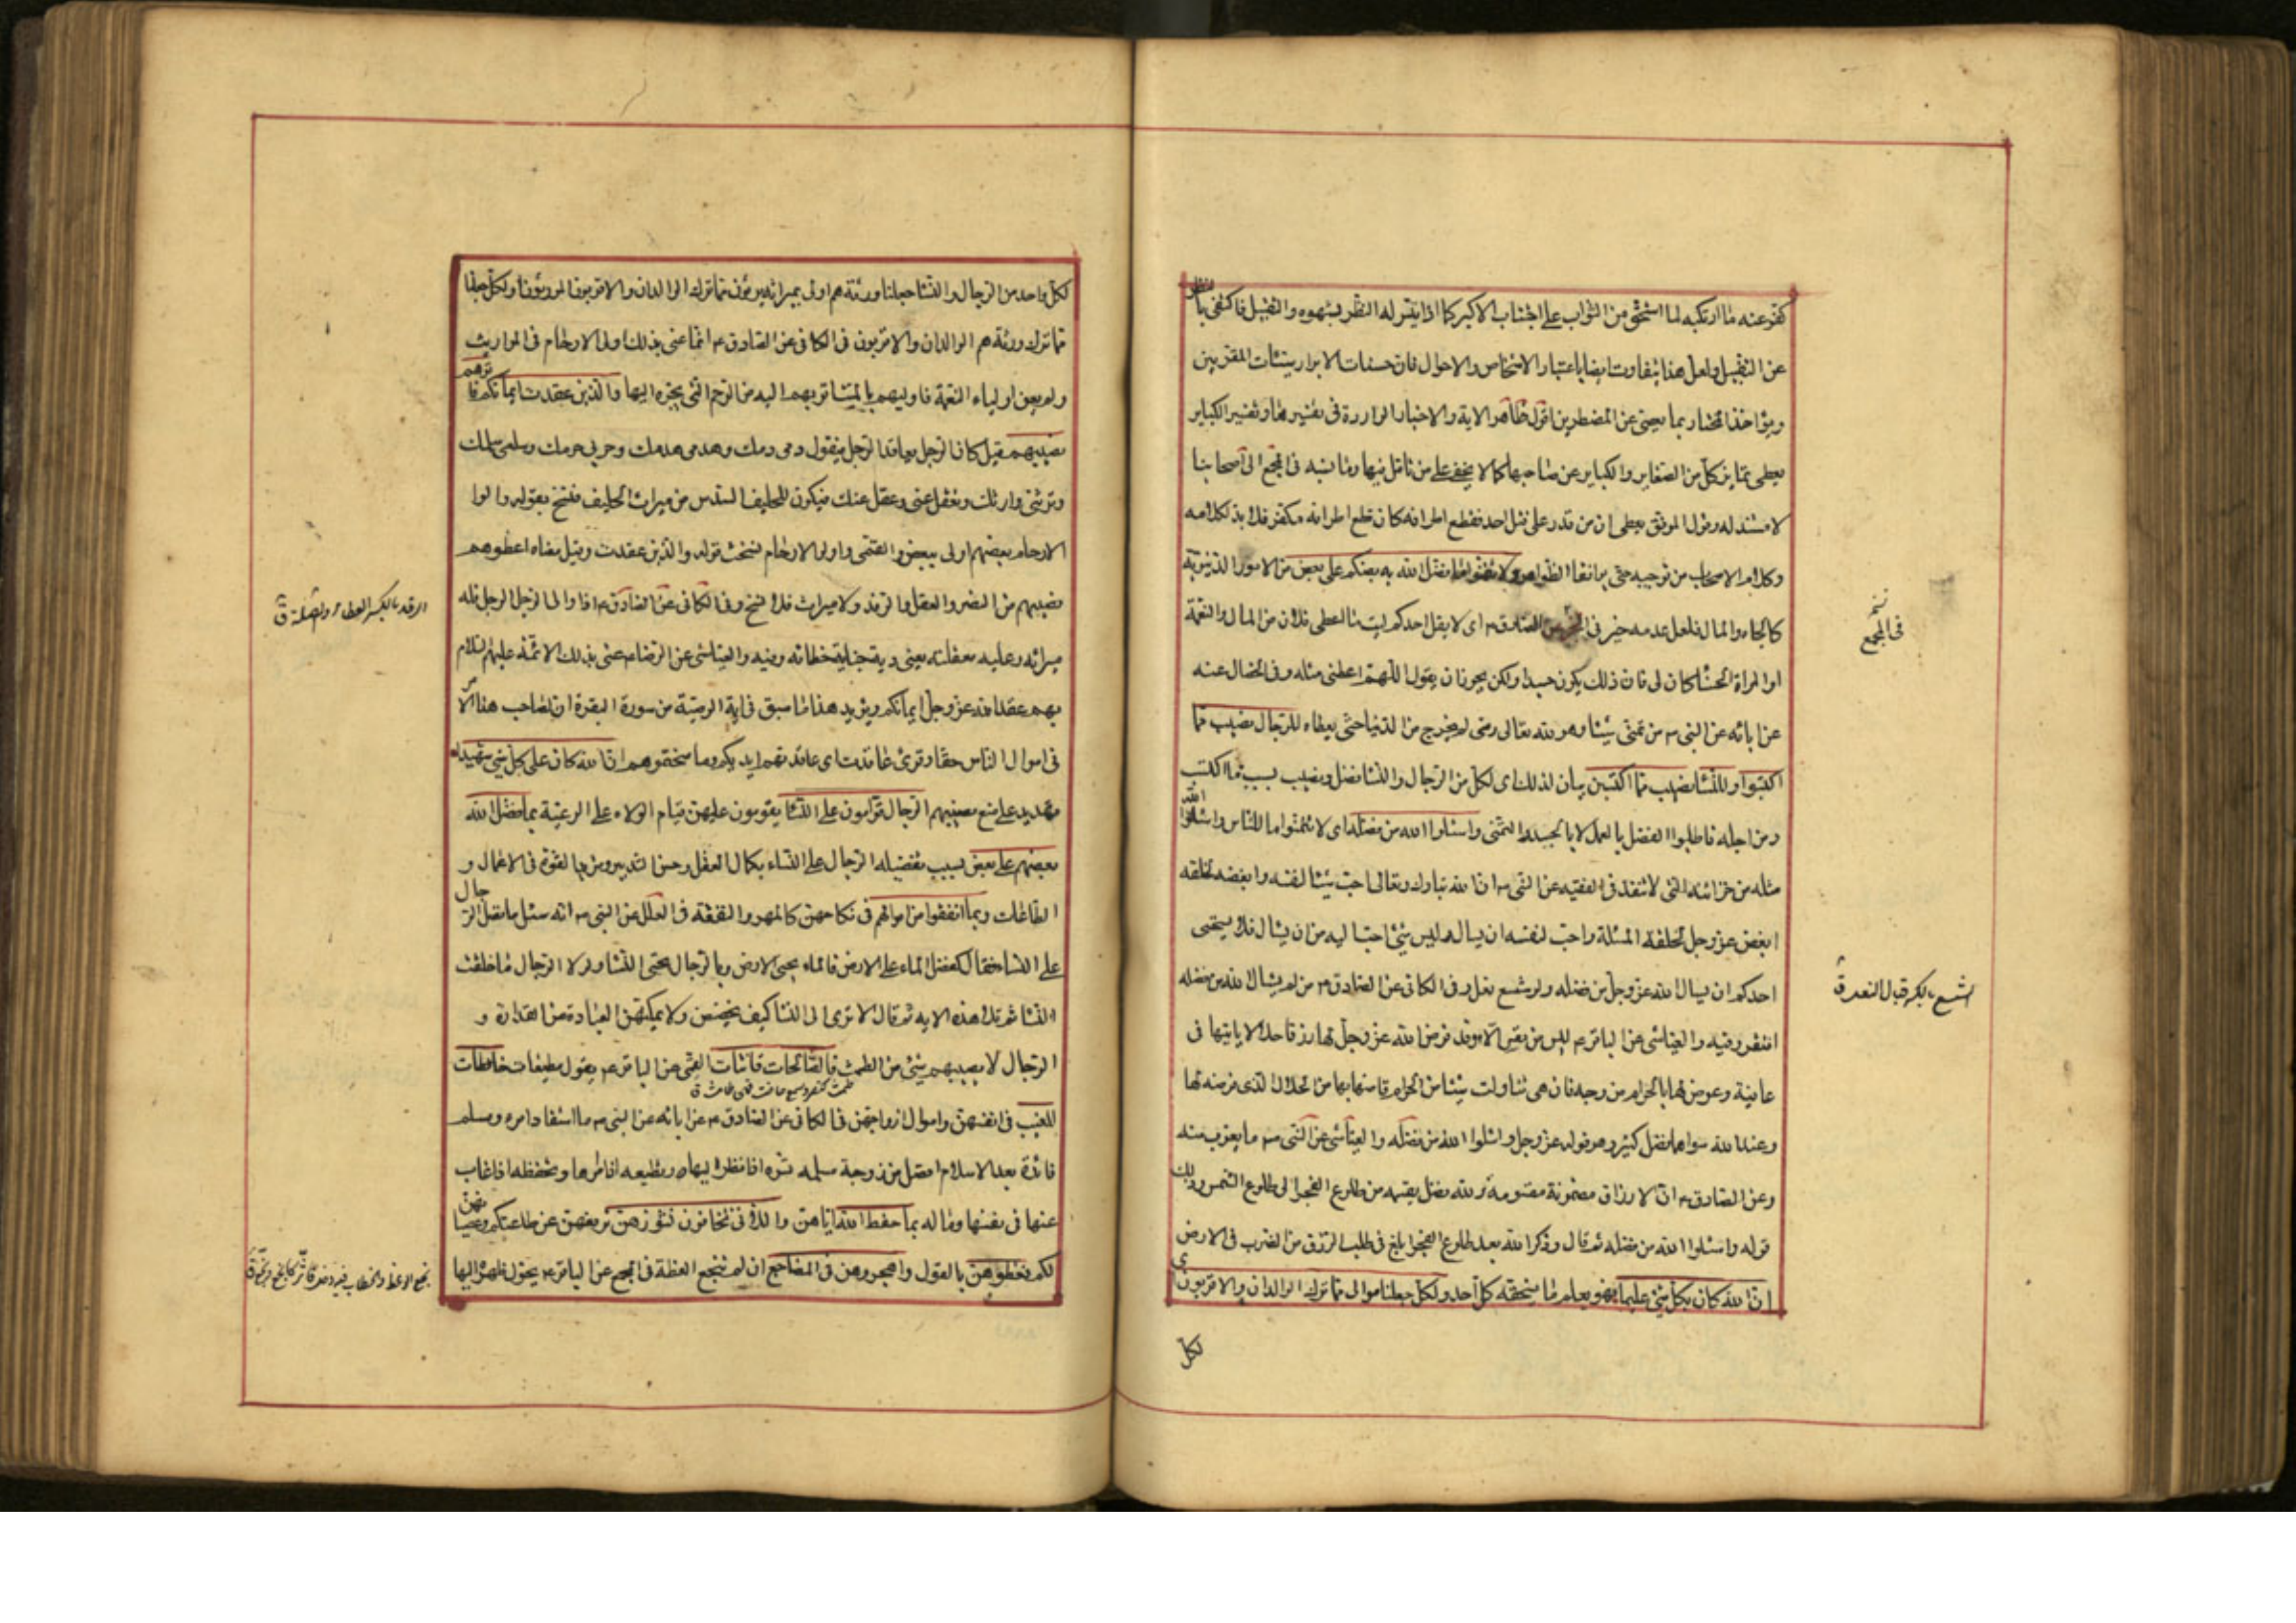 كفّر عنه ما ارتكبه لما استحق من الثواب على اجتناب الاكبر كما اذا تيسّر له النظر بشهوه والتقبيل فاكتفى بالنظر
عن التقبيل ولعل هذا يتفاوت ايضا باعتبار الاشخاص والاحوال فان حسنات الابرار سيئات المقربين
ويؤاخذ المختار بما يعفى عن المضطرين اقول ظاهر الاية والاخبار الواردة فى تفسيرها وتفسير الكباير
يعطى تمايز كل من الصغاير والكباير عن صاحبها كما لا يخفى على من تأمل فيها وما نسبه فى المجمع الى اصحابنا
لا مستند له وقول الموفق يعطى ان من قدر على قتل احد فقطع اطرافه كان قطع اطرافه مكفرا فلا بد لكلامه
وكلام الاصحاب من توجيه حتى يوافقا الظواهر ولا تتمنوا ما فضل الله به بعضكم على بعض من الامور الدنيوية
كالجاه والمال فلعل عدمه خير فى المجمع عن الصادق ع اى لا يقل احدكم ليت ما اعطى فلان من المال والنعمة
او المراة الحسناء كان لى فان ذلك يكون حسدا ولكن يجوز ان يقول اللهم اعطنى مثله وفى الخصال عنه
عن ابائه عن النبى ص من تمنى شيئا وهو لله تعالى رضى لم يخرج من الدنيا حتى يعطاه للرجال نصيب مما
اكتسبوا وللنساء نصيب مما اكتسبن بيان لذلك اى لكل من الرجال والنساء فضل ونصيب بسبب ما اكتسب
ومن اجله فاطلبوا الفضل بالعمل لا بالحسد والتمنى واسئلوا الله من فضله اى لا تتمنوا ما للناس واسئلوا الله
مثله من خزائنه التى لا تنفد فى الفقيه عن النبى ص ان الله تبارك وتعالى احب شيئا لنفسه وابغضه لخلقه
ابغض عز وجل لخلقه المسئلة واحب لنفسه ان يسال وليس شئ احب اليه من ان يسال فلا يستحيى
احدكم ان يسال الله عز وجل من فضله ولو شسع نعل وفى الكافى عن الصادق ع من لم يسال الله من فضله
افتقر وفيه والعياشى عن الباقر ع ليس من نفس الا وقد فرض الله عز وجل لها رزقا حلالا ياتيها فى
عافية وعرض لها بالحرام من وجه فان هى تناولت شيئا من الحرام قاصها بها من الحلال الذى فرض لها
وعند الله سواهما فضل كثير وهو قوله عز وجل واسئلوا الله من فضله والعياشى عن النبى ص ما يقرب منه
وعن الصادق ع ان الارزاق مضمونة مقسومة ولله فضل يقسمه من طلوع الفجر الى طلوع الشمس وذلك
قوله واسئلوا الله من فضله ثم قال وذكر الله بعد طلوع الفجر ابلغ فى طلب الرزق من الضرب فى الارض
ان الله كان بكل شئ عليما فهو يعلم ما يستحقه كل احد ولكل جعلنا موالى مما ترك الوالدان والاقربون اى
لكل
فى المجمع
الشسع بالكسر قبال النعل ق
لكل واحد من الرجال والنساء جعلنا ورثة هم اولى بميراثه يرثون مما ترك الوالدان والاقربون الموروثون او لكل جعلنا
مما ترك ورثة هم الوالدان والاقربون فى الكافى عن الصادق ع انما عنى بذلك اولى الارحام فى المواريث
ولم يعن اولياء النعمة فاوليهم بالميت اقربهم اليه من الرحم التى يجره اليها والذين عقدت ايمانكم فاتوهم
نصيبهم قيل كان الرجل يعاقد الرجل فيقول دمى دمك وهدمى هدمك وحربى حربك وسلمى سلمك
وترثنى وارثك وتعقل عنى وعقل عنك فيكون للحليف السدس من ميراث الحليف فنسخ بقوله واولوا
الارحام بعضهم اولى ببعض والقمى واولوا الارحام نسخت قوله والذين عقدت وقيل معناه اعطوهم
نصيبهم من النصر والعقل والرفد ولا ميراث فلا نسخ وفى الكافى عن الصادق ع اذا والى الرجل الرجل فله
ميراثه وعليه معقلته يعنى دية جناية خطائه وفيه والعياشى عن الرضا ع عنى بذلك الائمة عليهم السلام
بهم عقد الله عز وجل ايمانكم ويؤيد هذا ما سبق فى اية الوصية من سورة البقرة ان لصاحب هذا الامر
فى اموال الناس حقا وقرئ عاقدت اى عاقدتهم ايديكم وما سحتموهم ان الله كان على كل شئ شهيدا
تهديد على منع نصيبهم الرجال قوامون على النساء يقومون عليهن قيام الولاة على الرعية بما فضل الله
بعضهم على بعض بسبب تفضيله الرجال على النساء بكمال العقل وحسن التدبير ومزيد القوة فى الاعمال و
الطاعات وبما انفقوا من اموالهم فى نكاحهن كالمهر والنفقة فى العلل عن النبى ص انه سئل ما فضل الرجال
على النساء فقال كفضل الماء على الارض فالماء يحيى الارض وبالرجال يحيى النساء ولولا الرجال ما خلقت
النساء ثم تلا هذه الاية ثم قال الا ترى الى النساء كيف يحضن ولا يمكنهن العبادة من القذارة و
الرجال لا يصيبهم شئ من الطمث فالصالحات قانتات القمى عن الباقر ع يقول مطيعات حافظات
طمثت كنصر وسمع حاضت فهى طامث ق
للغيب فى انفسهن واموال ازواجهن فى الكافى عن الصادق ع عن ابائه عن النبى ص ما استفاد امرء مسلم
فائدة بعد الاسلام افضل من زوجة مسلمه تسره اذا نظر اليها وتطيعه اذا امرها وتحفظه اذا غاب
عنها فى نفسها وماله بما حفظ الله اياهن واللاتى تخافون نشوزهن ترفعهن عن طاعتكم وعصيانهن
لكم فعظوهن بالقول واهجروهن فى المضاجع ان لم تنجع العظة فى المجمع عن الباقر ع يحول ظهره اليها
الرفد بالكسر العطاء والصلة ق
نجع الوعظ والخطاب فيه دخل فاثر كانجع ونجع ق